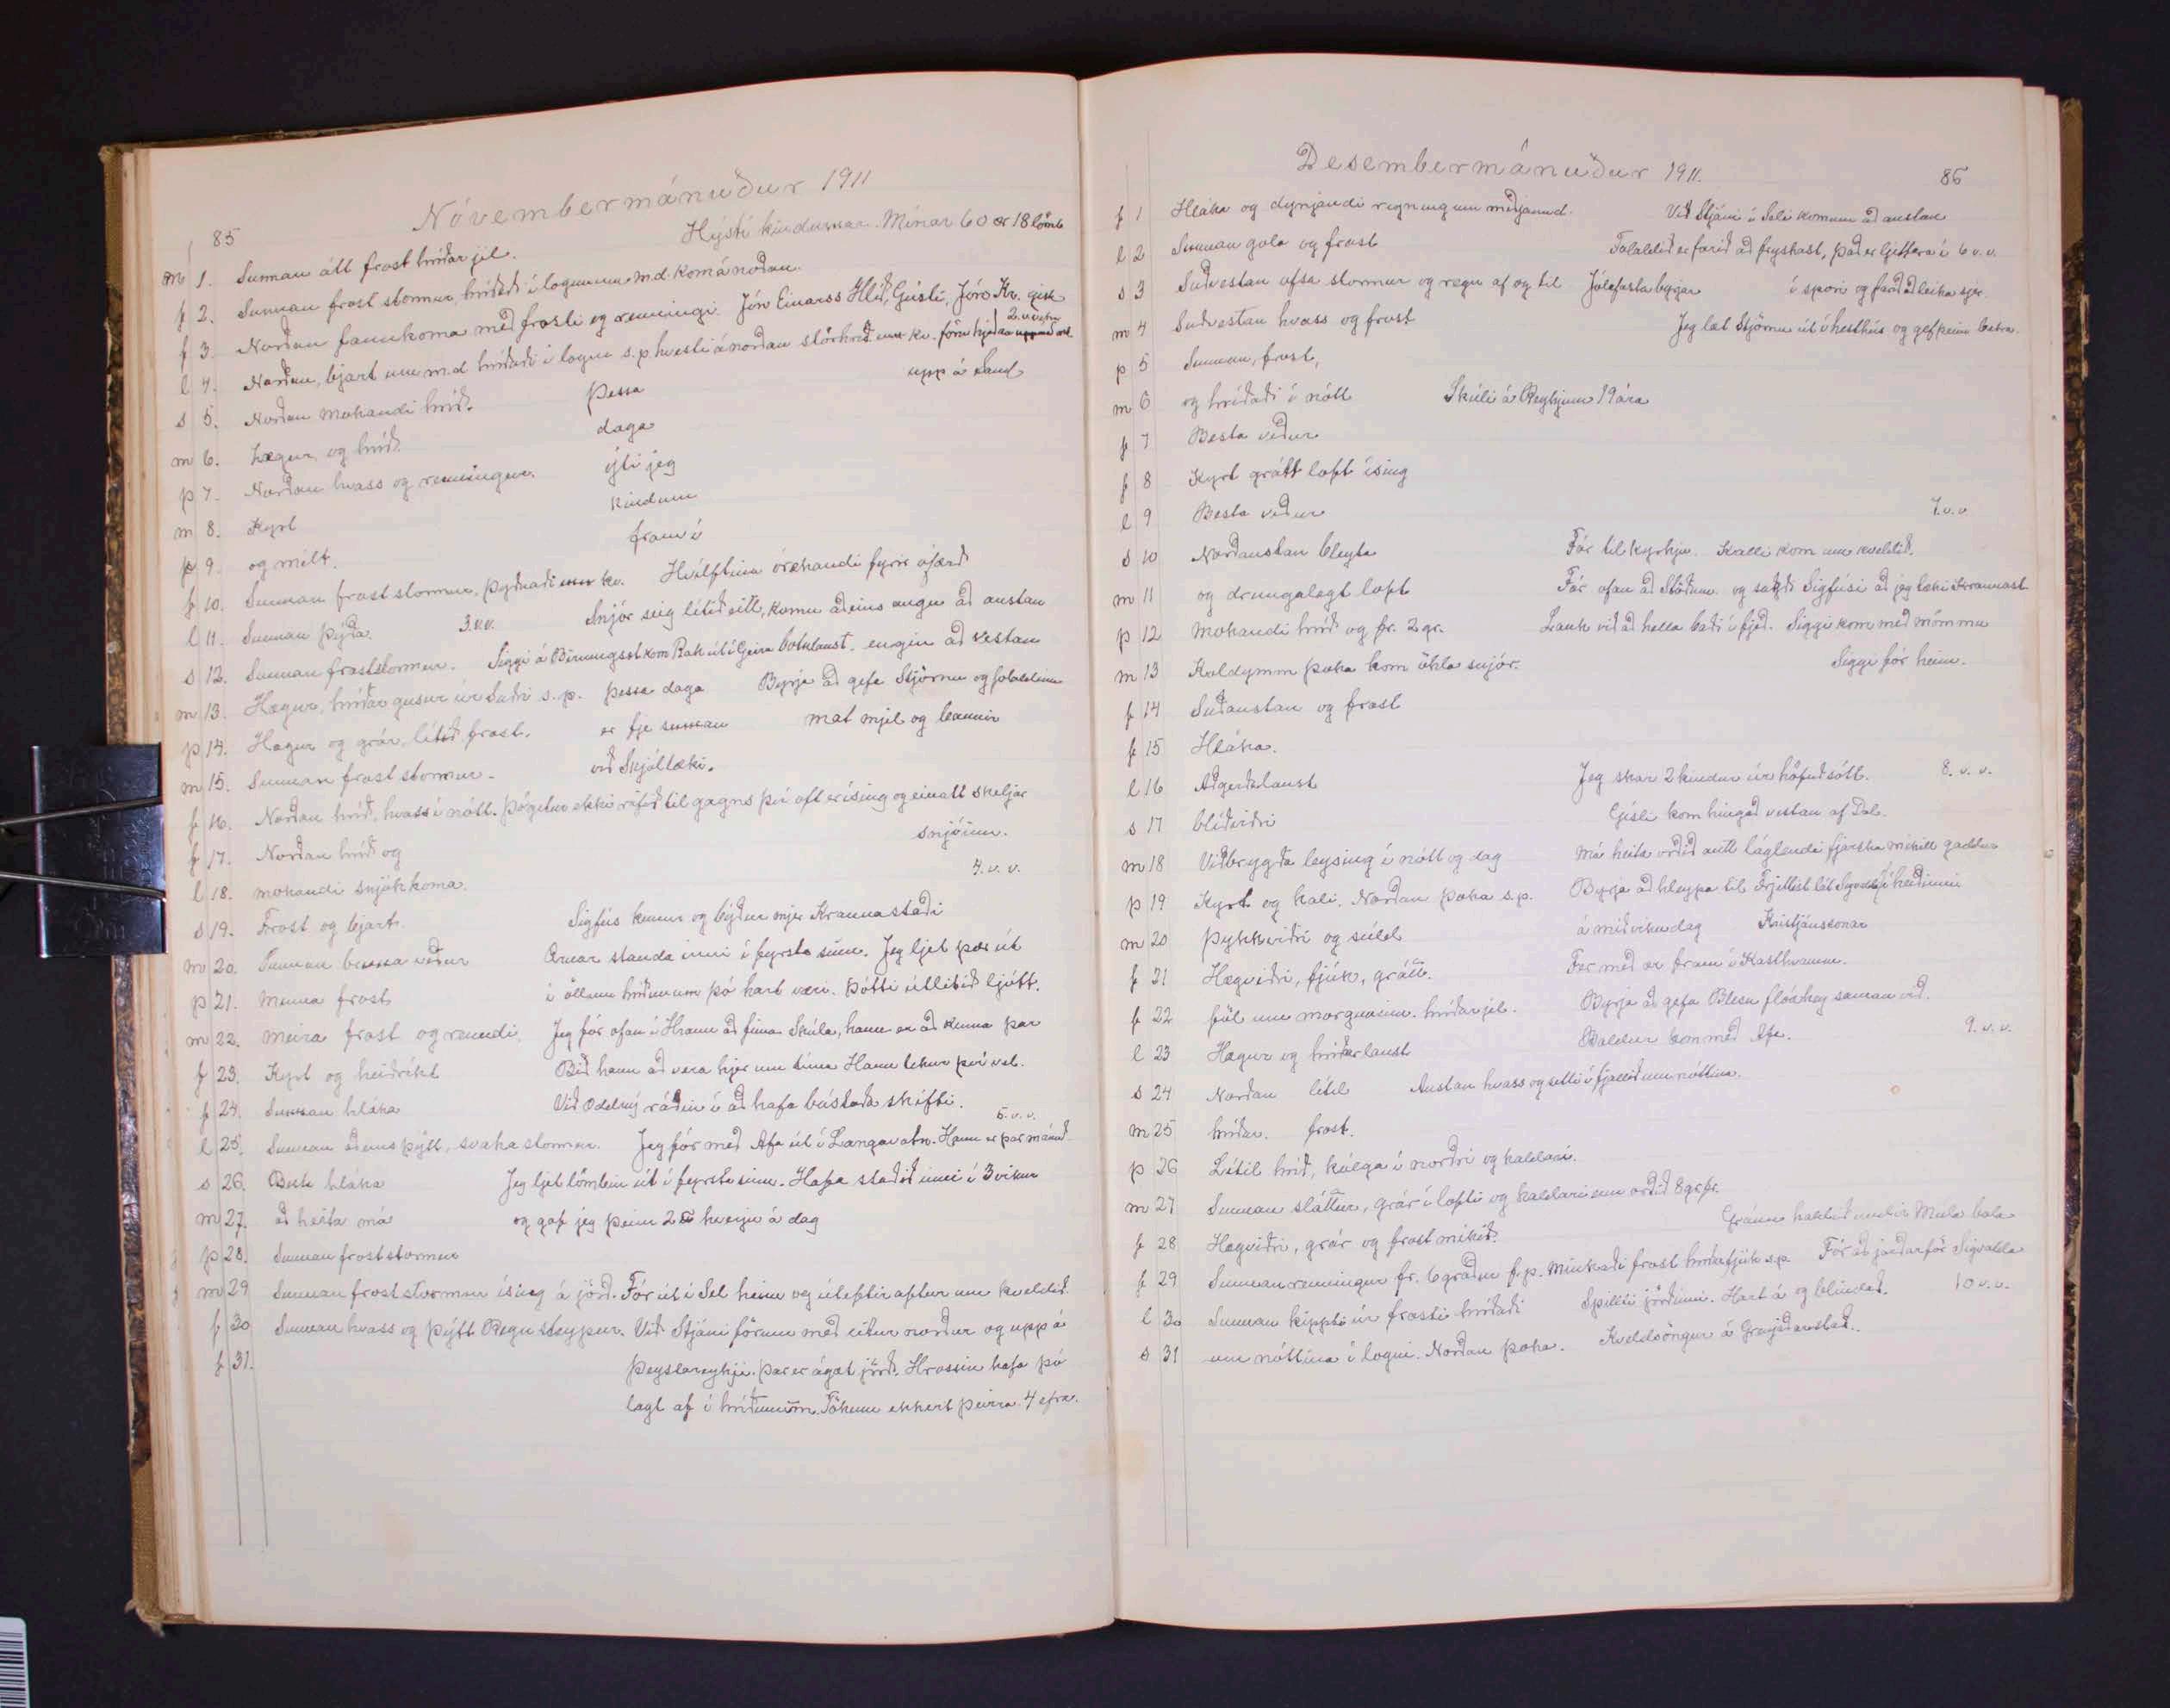 85
Nóvembermánuður 1911
m 1. Sunnan átt frost hríðar jel. Hýsti kindurnar. Mínar 60 ær 18 lömb
f 2. Sunnan frost stormur, hríðaði í logninu m.d. kom á norðan.
f 3. Norðan fannkoma með frosti og renningi. Jón Einarss Hlíð, Gústi, Jón Kr. gist
l 4. Norðan, bjart um m.d hríðaði í logni s.p hvesti á norðan stórhríð um kv. fóru hjeðan
2. v. vetrar
upp á Sand
s 5. Norðan mokandi hríð. Þessa
m 6. Hægur og hríð. daga
þ 7. Norðan hvass og renningur. ýti jeg
m 8. Kyrt kindum
f 9. og milt. fram í
f 10. Sunnan frost stormur, þyðnaði um kv. Hvilftina órekandi fyrir ófærð
l 11. Sunnan þýða. 3.v.v. Snjór seig lítið eitt, komu aðeins augu að austan
s 12. Sunnan froststormur. Siggi á Birningsst kom Rak út í Geira botnlaust. engin að vestan
m 13. Hægur, hríðar gusur úr Suðri s.p. þessa daga Byrja að gefa Stjörnu og folaldinu
þ 14. Hægur og grár, lítið frost. er fje sunnan mat mjel og
m 15. Sunnan frost stormur. við Skjóllæki.
f 16. Norðan hríð, hvass í nótt. Þó getur ekki rifið til gagns því oft er ísing og einatt skeljar
snjóinn.
f 17. Norðan hríð og
l 18. mokandi snjókkoma. 4. v. v.
s 19. Frost og bjart. Sigfús kemur og býður mjer Krannastaði
m 20. Sunnan besta veður Ærnar standa inni í fyrsta sinn. Jeg ljet þær út
þ 21. Minna frost í öllum hríðunum þó hart væri. Þótti útlitið ljótt.
m 22. Meira frost og renndi. Jeg fór ofan í Hraun að finna Skúla, hann er að kenna þar
f 23. Kyrt og heiðríkt Bið hann að vera hjer um tíma Hann tekur því vel.
f 24. Sunnan hláka Við Oddný ráðin í að hafa bústaða skifti.
5. v. v.
l 25. Sunnan aðeins þýtt, svaka stormur. Jeg fór með Afa út í Langavatn. Hann er þar mánuð.
s 26. Besta hláka Jeg ljet lömbin út í fyrsta sinn. Hafa staðið inni í 3 vikur
m 27. að heita má og gaf jeg þeim 2 ℔ hverju á dag
þ 28. Sunnan froststormur
m 29 Sunnan froststormur ísing á jörð. Fór út í Sel heim og úteftir aftur um kveldið.
f 30 Sunnan hvass og þýtt Regn steypur. Við Stjáni fórum með eitur norður og upp á
f 31. Þeystareykji. Þar er ágæt jörð. Hrossin hafa þó
lagt af í hríðunum. Tókum ekkert þeirra. 4 efra.
Desembermánuður 1911.
86
f 1 Hláka og dynjandi regning um miðjan d. Við Stjáni í Seli komum að austan
l 2 Sunnan gola og frost Folaldið er farið að frýskast, það er ljettara í 6 v.v.
s 3 Suðvestan ofsa stormur og regn af og til Jólafasta byrjar í spori og farið að leika sjer.
m 4 Suðvestan hvass og frost Jeg læt Stjörnu út í hesthús og gef þeim betra.
þ 5 Sunnan, frost,
m 6 og hríðaði í nótt Skúli á Reykjum 19 ára
f 7 Besta veður
f 8 Kyrt grátt loft ísing
l 9 Besta veður 7.v.v
s 10 Norðaustan bleyta Fór til kyrkju. Kalli kom um kveldið.
m 11 og drungalegt loft Fór ofan að Stöðum og sagði Sigfúsi að jeg tæki Krannast
þ 12 Mokandi hríð og fr. 2 gr. Lauk við að hella baði í fjeð. Siggi kom með mömmu
m 13 Koldymm þoka kom ökla snjór. Siggi fór heim.
f 14 Suðaustan og frost
f 15 Hláka.
l 16 Aðgerðalaust Jeg skar 2 kindur úr höfuðsótt. 8. v. v.
s 17 blíðviðri Gísli kom hingað vestan af Dal.
m 18 Viðbrygða leysing í nótt og dag Má heita orðið autt láglendi fjarska mikill gaddur
þ 19 Kyrt og kali. Norðan þoka s.p. Byrja að hleypa til Frjettist lát Sigvalda í heiðinni
m 20 þykkviðri og súld á miðvikudag Kristjánssonar
f 21 Hægviðri, fjúk, grátt. Fer með ær fram í Kasthvamm.
f 22 föl um morguninn. hríðarjel. Byrja að gefa Blesu flóahey saman við.
l 23 Hægur og hríðarlaust Baldur kom með Afa. 9. v. v.
s 24 Norðan lítil Austan hvass og setti í fjallið um nóttina.
m 25 hríðar. frost.
þ 26 Lítil hríð, kólga í norðri og kaldari.
m 27 Sunnan sláttur, grár í lofti og kaldari um orðið 8 gr fr.
f 28 Hægviðri, grár og frost mikið.
f 29 Sunnanrenningur fr. 6 gráður f.p. Minkaði frost hríðafjúk s.p. Fór að jarðarför Sigvalda
l 30 Sunnan kippti úr frosti hríðaði Spillti jörðinni. Hart á og blindað. 10 v.v.
s 31 um nóttina í logni. Norðan þoka. Kveldsöngur á Grenjaðarstað.